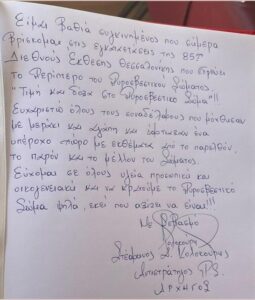 Είμαι βαθιά συγκινημένος που σήμερα
βρίσκομαι στις εγκαταστάσεις της 85ης
Διεθνούς Έκθεσης Θεσσαλονίκης που στήθηκε
το Περίπτερο του Πυροσβεστικού Σώματος
"Τιμή και δόξα στο Πυροσβεστικό Σώμα"!!
Ευχαριστώ όλους τους συναδέλφους που μόχθησαν
με μεράκι και αγάπη και έφτιαξαν ένα
υπέροχο χώρο με εκθέματα από το παρελθόν,
το παρόν και το μέλλον του Σώματος.
Εύχομαι σε όλους υγεία προσωπική και
οικογενειακή και να κρατούμε το Πυροσβεστικό
Σώμα ψηλά, εκεί που αξίζει να είναι!!!
Με σεβασμό
Στέφανος Κολοκούρης
Αντιστράτηγος Π.Σ.
ΑΡΧΗΓΟΣ